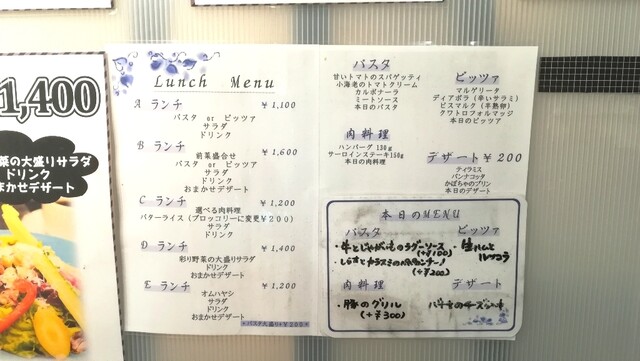 1,400
菜の大盛りサラダ
ドリンク
まかせデザート
Lunch Menu
A ランチ ¥1,100
パスタ or ピッツァ
サラダ
ドリンク
B ランチ ¥1,600
前菜盛合せ
パスタ or ピッツァ
サラダ
ドリンク
おまかせデザート
C ランチ ¥1,200
選べる肉料理
バターライス(ブロッコリーに変更¥200)
サラダ
ドリンク
D ランチ ¥1,400
彩り野菜の大盛りサラダ
ドリンク
おまかせデザート
E ランチ ¥1,200
オムハヤシ
サラダ
ドリンク
おまかせデザート
*パスタ大盛り+¥200*
パスタ
甘いトマトのスパゲッティ
小海老のトマトクリーム
カルボナーラ
ミートソース
本日のパスタ
ピッツァ
マルゲリータ
ディアボラ(辛いサラミ)
ビスマルク(半熟卵)
クワトロフォルマッジ
本日のピッツァ
肉料理
ハンバーグ 130g
サーロインステーキ150g
本日の肉料理
デザート ¥200
ティラミス
パンナコッタ
かぼちゃのプリン
本日のデザート
本日のMENU
パスタ
・牛とじゃがいものラグーソース
(+¥100)
・しらすとカラスミのペペロンチーノ
(+¥200)
ピッツァ
・生ハムと
ルッコラ
肉料理
・豚のグリル
(+¥300)
デザート